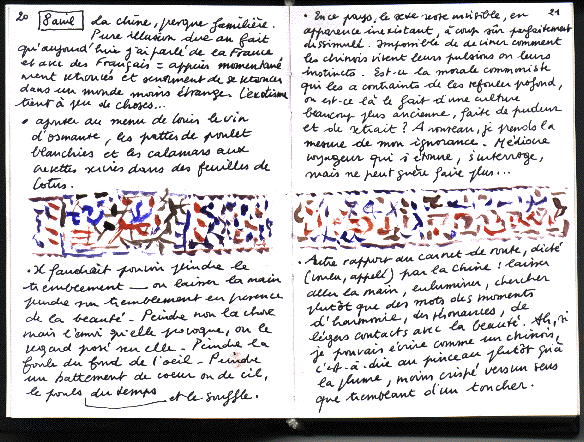 20
8 avril La chine, presque familière.
Pure illusion due au fait
qu'aujourd'hui j'ai parlé de la France
et avec des Français = apprécier momentané
ment retrouvés et sûrement de se retrouver
dans un monde moins étrange. L'exotisme
tient à peu de choses...
• ajouter au menu de Louis le vin
d'osmante, les pattes de poulet
blanchies et les calamars aux
crevettes suivies dans des feuilles de
lotus.
• Il faudrait pouvoir peindre le
tremblement — ou laisser la main
peindre son tremblement en présence
de la beauté – Peindre non la chose
mais l'envi qu'elle provoque, ou le
regard posé sur elle – Peindre la
foule du fond de l'oeil – Peindre
un battement de coeur ou de cil,
le pouls du temps et le souffle.
21
• En ce pays, le sexe reste invisible, en
apparence inexistant, à coup sûr parfaitement
dissimulé. Impossible de deviner comment
les chinois vivent leurs pulsions ou leurs
instincts. Est-ce la morale communiste
qui les a contraints de les refouler profond,
ou est-ce là le fait d'une culture
beaucoup plus ancienne, faite de pudeur
et de retrait ? A nouveau, je prends la
mesure de mon ignorance. Médiocre
voyageur qui s'étonne, s'interroge,
mais ne peut guère faire plus...
• Autre rapport au carnet de route, dicté
(voulu, appelé) par la Chine : laisser
aller la main, enluminer, chercher
plutôt que des mots des moments
d'harmonie, des résonances, de
légers contacts avec la beauté. Ah, si
je pouvais écrire comme un chinois,
c'est-à-dire au pinceau plutôt qu'à
la plume, moins crispé vers un sens
que tremblant d'un toucher.